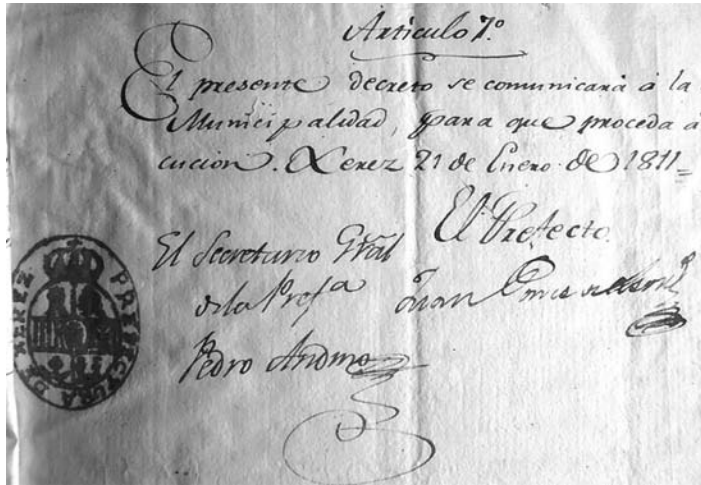 Articulo 7º
El presente decreto se comunicará á la
Municipalidad, para que proceda á
cucion. Xerez 21 de Enero de 1811=
El Prefecto
El Secretario Gräl
de la Prefª
Juan
Pedro Andino
PREFECTURA DE XEREZ